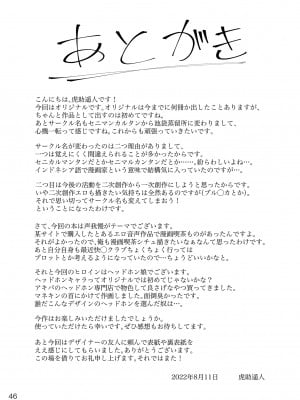 あとがき
こんにちは、虎助遥人です!
今回はオリジナルです。オリジナルは今までに何冊か出したことありますが、
ちゃんと作品として出すのは初めてですね。
あとサークル名もセニマンカルタンから池袋蒸留所に変わりまして、
心機一転って感じですね。これからも頑張っていきたいです。
サークル名が変わったのは二つ理由がありまして、
一つは覚えにくく間違えられることが多かったからです。
セニカルマンタンだとかセニマンカルタンだとか……紛らわしいよね…
インドネシア語で漫画家という意味で結構気に入っていたのですが…
二つ目は今後の活動を二次創作から一次創作にしようと思ったからです。
いや二次創作エロも描きたい気持ちは全然あるのですが(ブル〇カとか)。
それで思い切ってサークル名も変えてしまおう!
ということになったわけです。
さて、今回の本は声我慢がテーマでございます。
某サイトで購入したとあるエロ音声作品で漫画喫茶ものがあったんですよ。
それがよかったので、俺も漫画喫茶シチュ描きたいなぁなんて思ったわけです。
あと自分自身も最近快〇クラブちょくちょく行っては
プロットとか考えるようになっていたので…ちょうどいいかなと。
それと今回のヒロインはヘッドホン娘でございます。
ヘッドホンキャラってオリジナルでは初めてじゃないかな?
アキバのヘッドホン専門店で物色して良さげなやつ買ってきました。
マネキンの首にかけて作画しました。面倒臭かったです。
誰だこんなデザインのヘッドホンを選んだ奴は…。
今作はお楽しみいただけましたでしょうか。
使っていただいたら幸いです。ぜひ感想もお待ちしてます。
あと今回はデザイナーの友人に頼んで表紙や裏表紙を
ええ感じにしてもらいました。ありがとうございます。
この場を借りてお礼申し上げます。それではまた!
2022年8月11日 虎助遥人
46